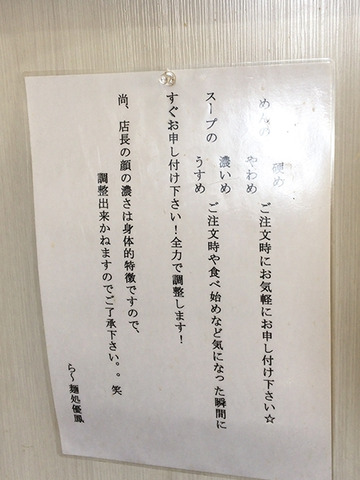 めんの
硬め
やわめ
ご注文時にお気軽にお申し付け下さい☆
スープの
濃いめ
うすめ
ご注文時や食べ始めなど気になった瞬間に
すぐお申し付け下さい！全力で調整します！
尚、店長の顔の濃さは身体的特徴ですので、
調整出来かねますのでご了承下さい。。笑
ら〜麺処優鳳